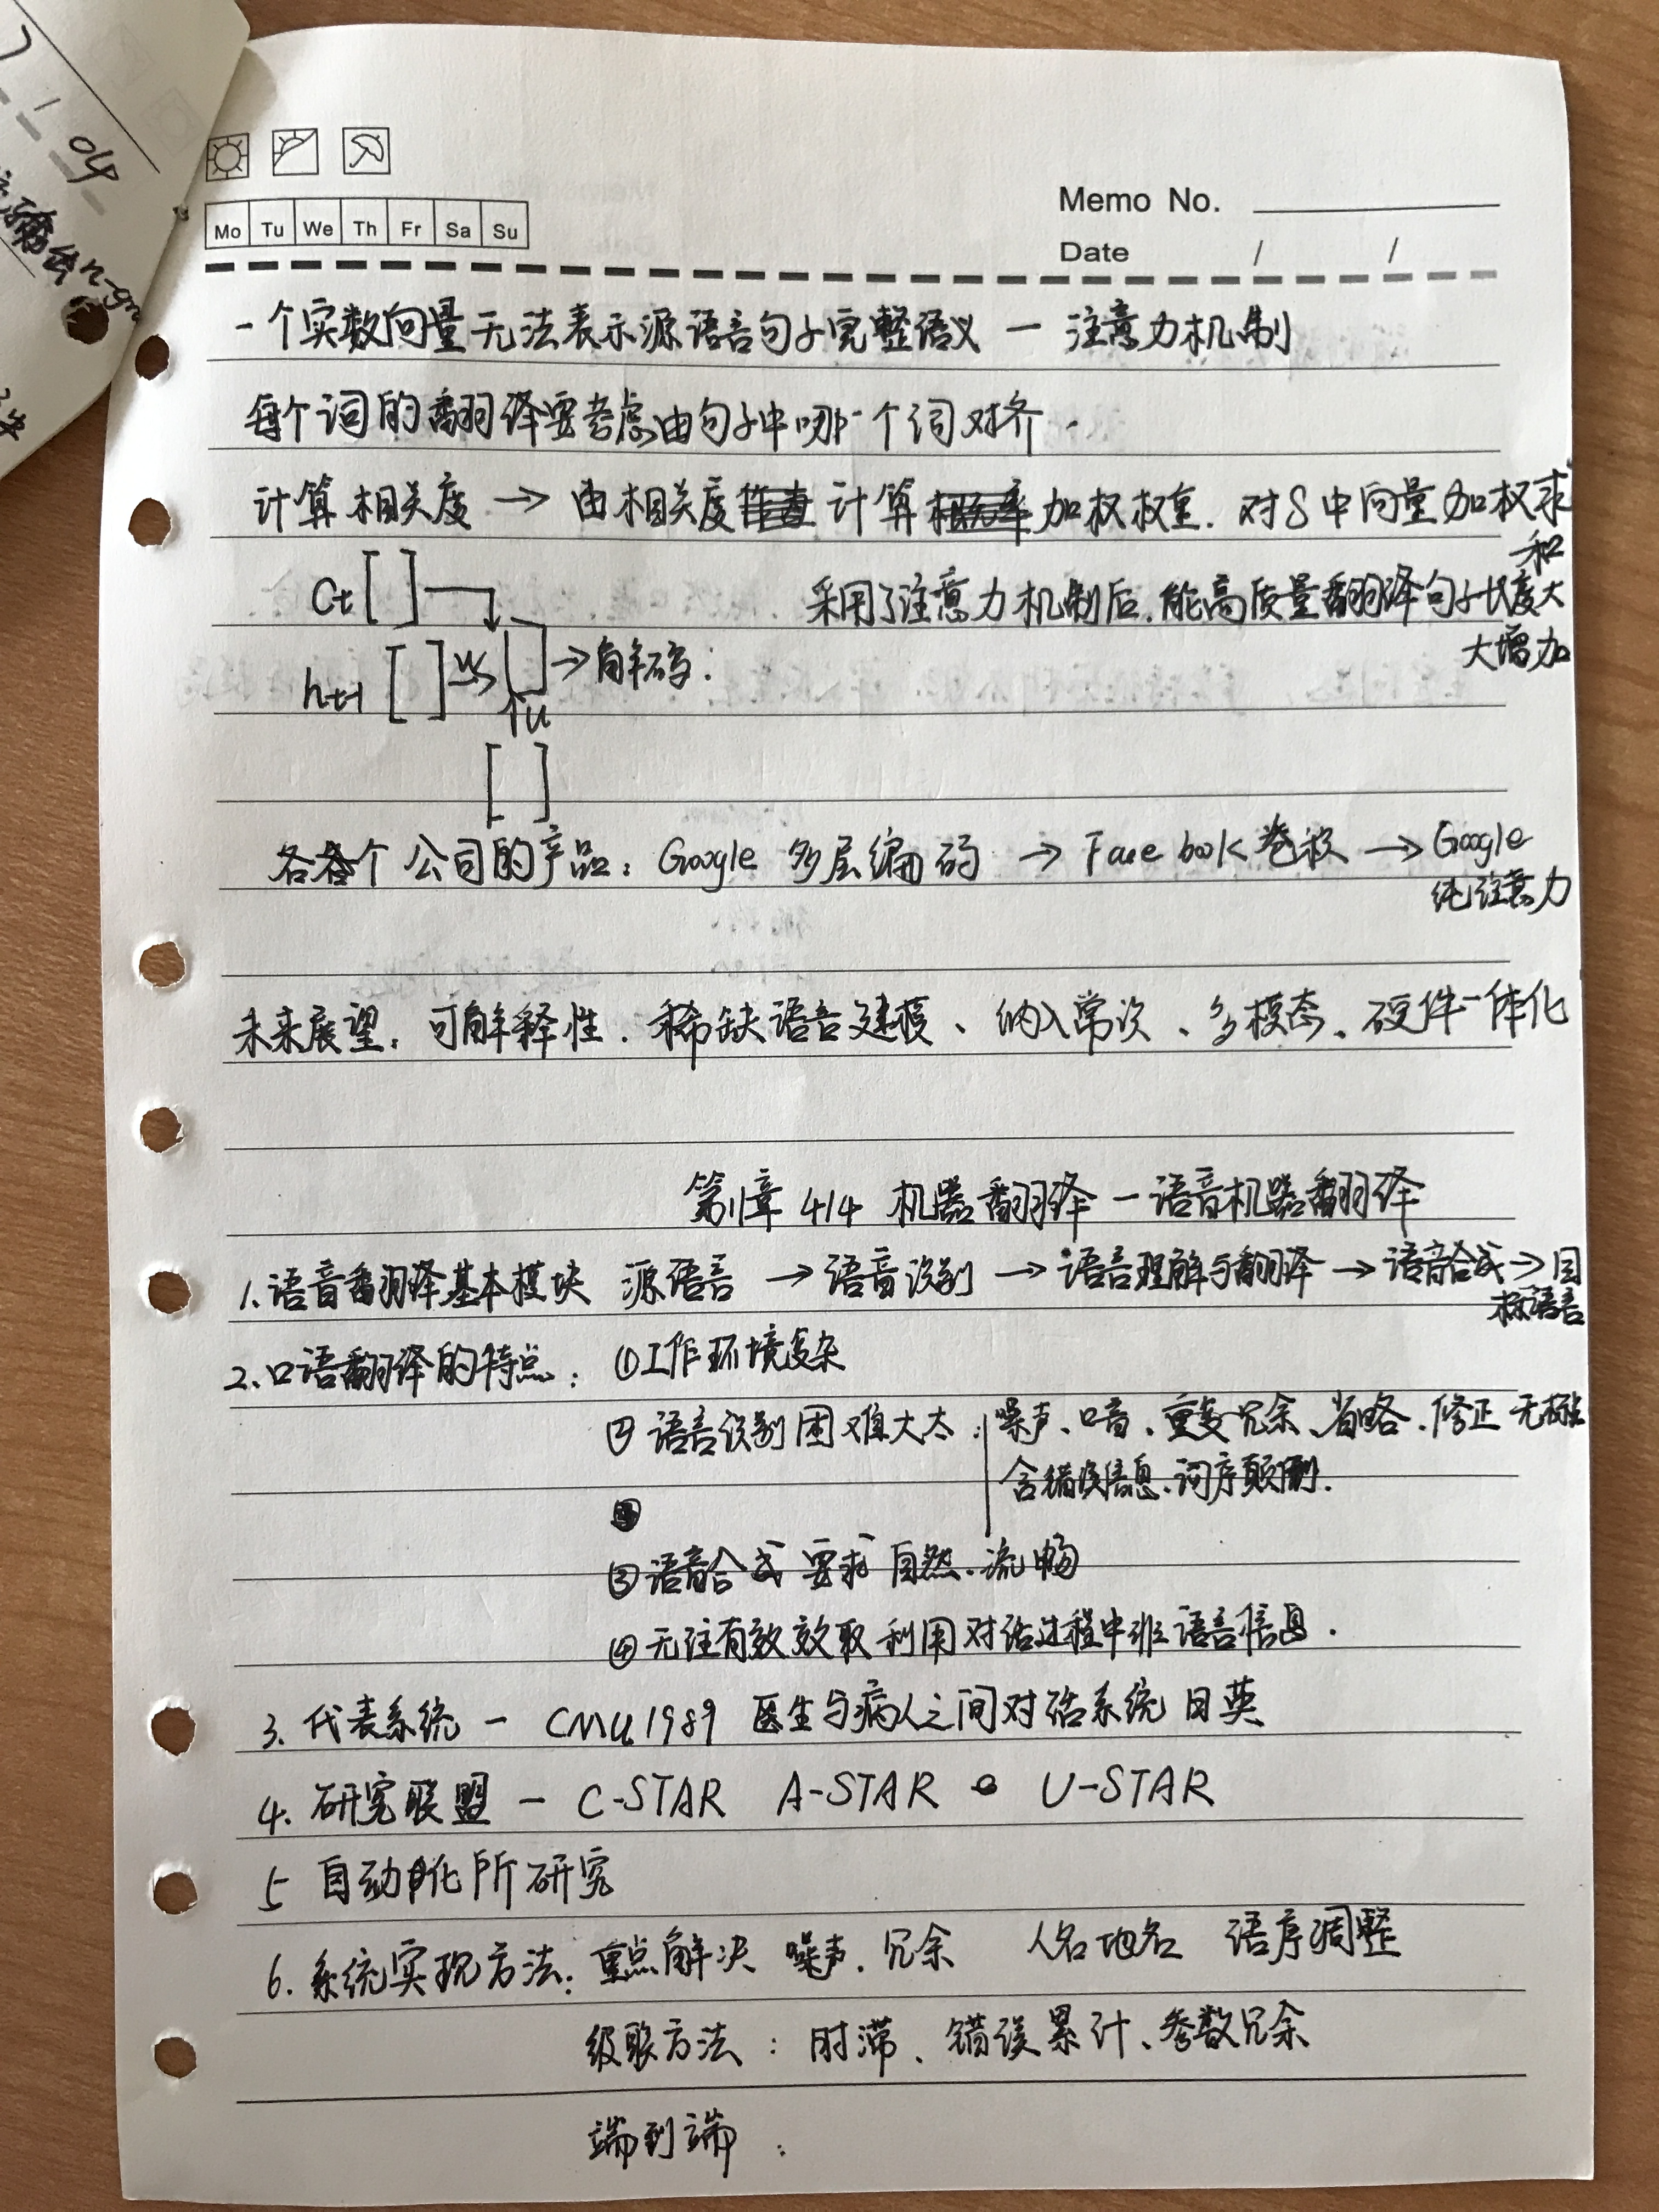 04
n-gr
Mo Tu We Th Fr Sa Su
Memo No.
Date / /
一个实数向量无法表示源语言句子完整语义 — 注意力机制
每个词的翻译要考虑由句子中哪一个词对齐.
计算相关度 → 由相关度 计算 加权权重. 对S中向量加权求
和
Ct [ ] 采用了注意力机制后,能高质量翻译句子长度大
大增加
ht-1 [ ] W → [ ] → 解码:
↑U
[ ]
各个公司的产品: Google 多层编码 → Facebook 卷积 → Google
纯注意力
未来展望: 可解释性. 稀缺语言建模、纳入常识、多模态、硬件一体化
第11章 4/4 机器翻译 — 语音机器翻译
1.语音翻译基本模块 源语言 → 语音识别 → 语言理解与翻译 → 语音合成 → 目
标语言
2.口语翻译的特点: ①工作环境复杂
② 语言识别困难大大: 噪声、口音、重复冗余、省略、修正 无标点
含错误信息、词序颠倒.
③语音合成 要求 自然、流畅
④无法有效 取利用对话过程中非语言信息.
3. 代表系统 — CMU1989 医生与病人之间对话系统 日英
4. 研究联盟 — C-STAR A-STAR U-STAR
5 自动化所研究
6. 系统实现方法: 重点解决 噪声. 冗余 人名地名 语序调整
级联方法: 时滞、错误累计、参数冗余
端到端: